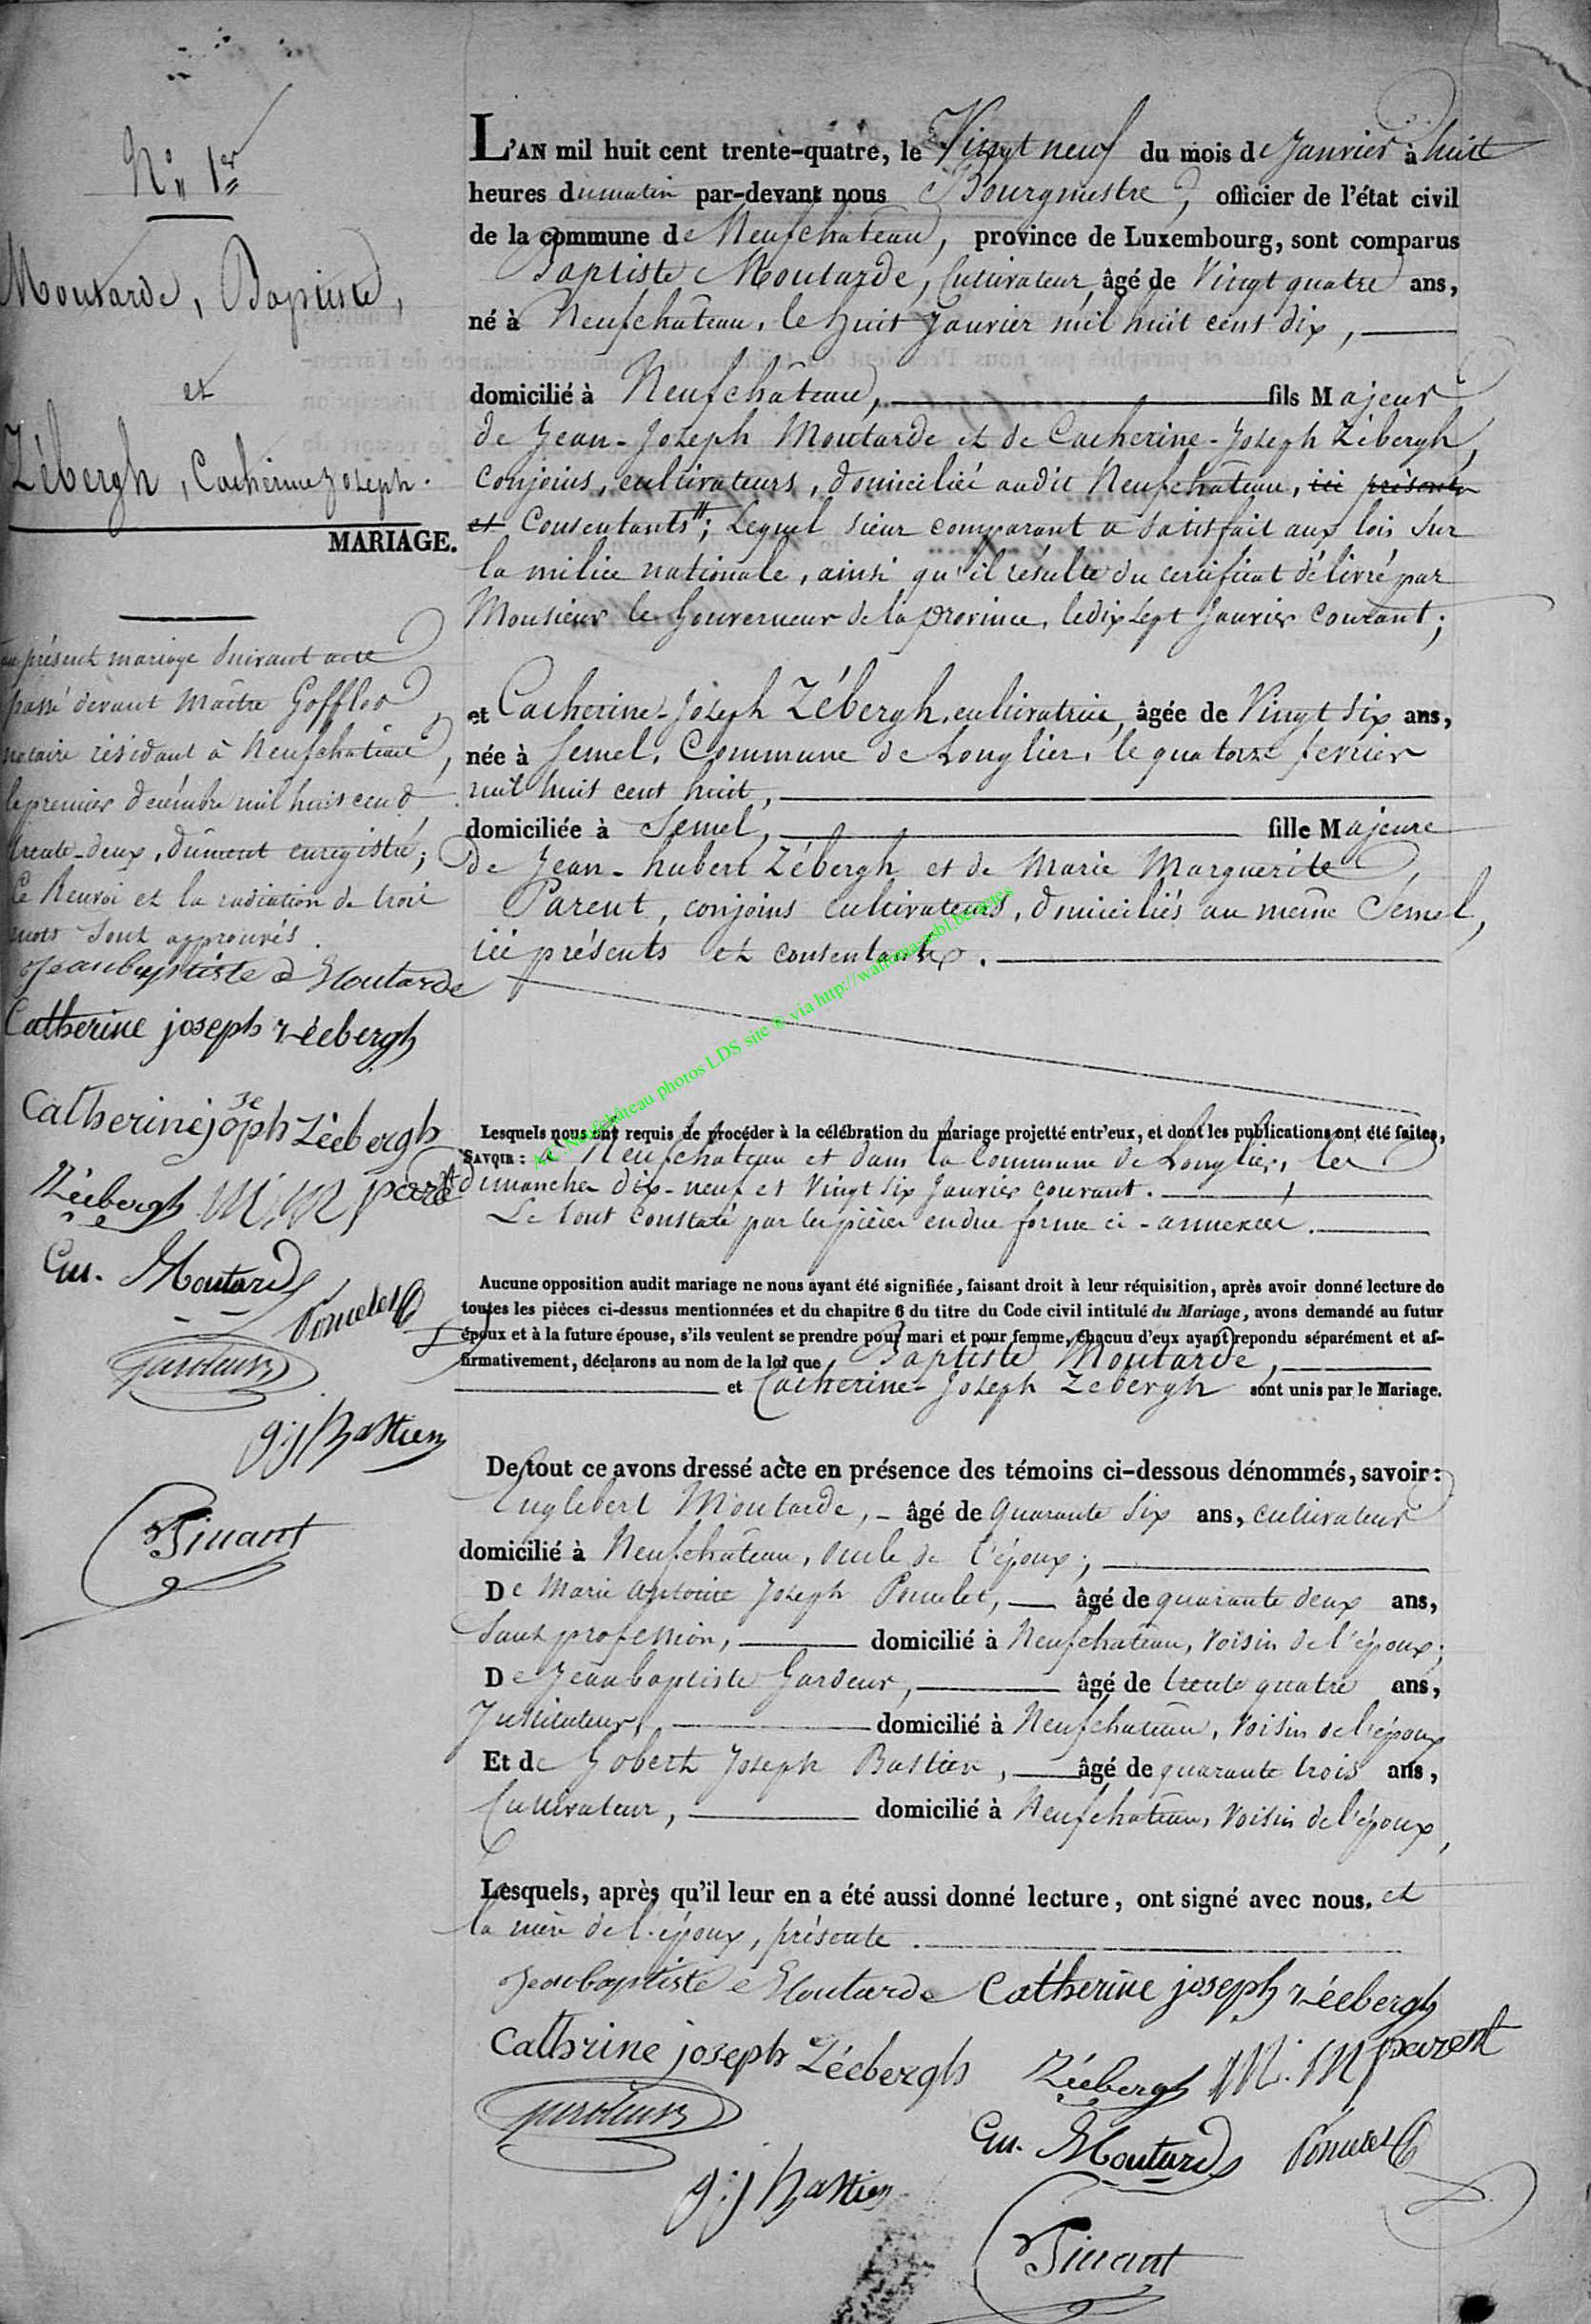 N.° 1er
Moutarde, Baptiste,
et
Zébergh, Catherine Joseph.
MARIAGE.
au présent mariage suivant acte
passé devant Maître Gofflot
notaire résidant à Neufchâteau,
le premier décembre mil huit cent
trente-deux, dûment enregistré;
Ce Renvoi et la radiation de trois
mots sont approuvés.
Jeanbaptiste Moutarde
Catherine joseph zéebergh
Catherine joseph Zéebergh
Zéebergh M. M parent
En. Moutarde
Poncelet
jardeur
g: j Bastien
Pinant
L'AN mil huit cent trente-quatre, le Vingt neuf du mois de Janvier à huit
heures du matin par-devant nous Bourgmestre, officier de l'état civil
de la commune de Neufchateau, province de Luxembourg, sont comparus
Baptiste Moutarde, Cultivateur, âgé de Vingt quatre ans,
né à Neufchâteau, le huit Janvier mil huit cent dix,
domicilié à Neufchâteau, fils Majeur
de Jean-Joseph Moutarde et de Catherine-Joseph Zébergh,
conjoins, cultivateurs, domicilié audit Neufchâteau, ici présents
et Consentants #; Lequel sieur comparant a satisfait aux lois sur
la milice nationale, ainsi qu'il résulte du certificat délivré par
Monsieur le Gouverneur de la province, le dix sept Janvier courant;
et Catherine-Joseph Zébergh, cultivatrice, âgée de Vingt six ans,
née à Semel, Commune de Longlier, le quatorze fevrier
mil huit cent huit,
domiciliée à Semel, fille Majeure
de Jean-hubert Zébergh et de Marie Marguerite
Parent, conjoins cultivateurs, domiciliés au même Semel,
ici présents et consentants.
Lesquels nous ont requis de procéder à la célébration du mariage projetté entr'eux, et dont les publications ont été faites,
SAVOIR: à Neufchateau et dans la Commune de Longlier, les
dimanches dix-neuf et Vingt six Janvier courant.
Le tout constaté par les pièces en due forme ci-annexées.
Aucune opposition audit mariage ne nous ayant été signifiée, faisant droit à leur réquisition, après avoir donné lecture de
toutes les pièces ci-dessus mentionnées et du chapitre 6 du titre du Code civil intitulé du Mariage, avons demandé au futur
époux et à la future épouse, s'ils veulent se prendre pour mari et pour femme, chacun d'eux ayant repondu séparément et af-
firmativement, déclarons au nom de la loi que Baptiste Moutarde,
et Catherine-Joseph Zebergh sont unis par le Mariage.
De tout ce avons dressé acte en présence des témoins ci-dessous dénommés, savoir:
Englebert Moutarde, âgé de quarante six ans, cultivateur
domicilié à Neufchâteau, oncle de l'époux;
De Marie Antoine Joseph Poncelet, âgé de quarante deux ans,
Sans profession, domicilié à Neufchâteau, Voisin de l'époux;
De Jean baptiste Jardeur, âgé de trente quatre ans,
Instituteur, domicilié à Neufchateau, Voisin de l'époux
Et de Gobert Joseph Bastien, âgé de quarante trois ans,
Cultivateur, domicilié à Neufchateau, Voisin de l'époux,
Lesquels, après qu'il leur en a été aussi donné lecture, ont signé avec nous. et
la mère de l'époux, présente.
Jeanbaptiste Moutarde Catherine joseph zéebergh
Cathrine joseph Zéebergh Zéebergh M. M parent
jardeur
En. Moutarde Poncelet
g: j Bastien
Pinant